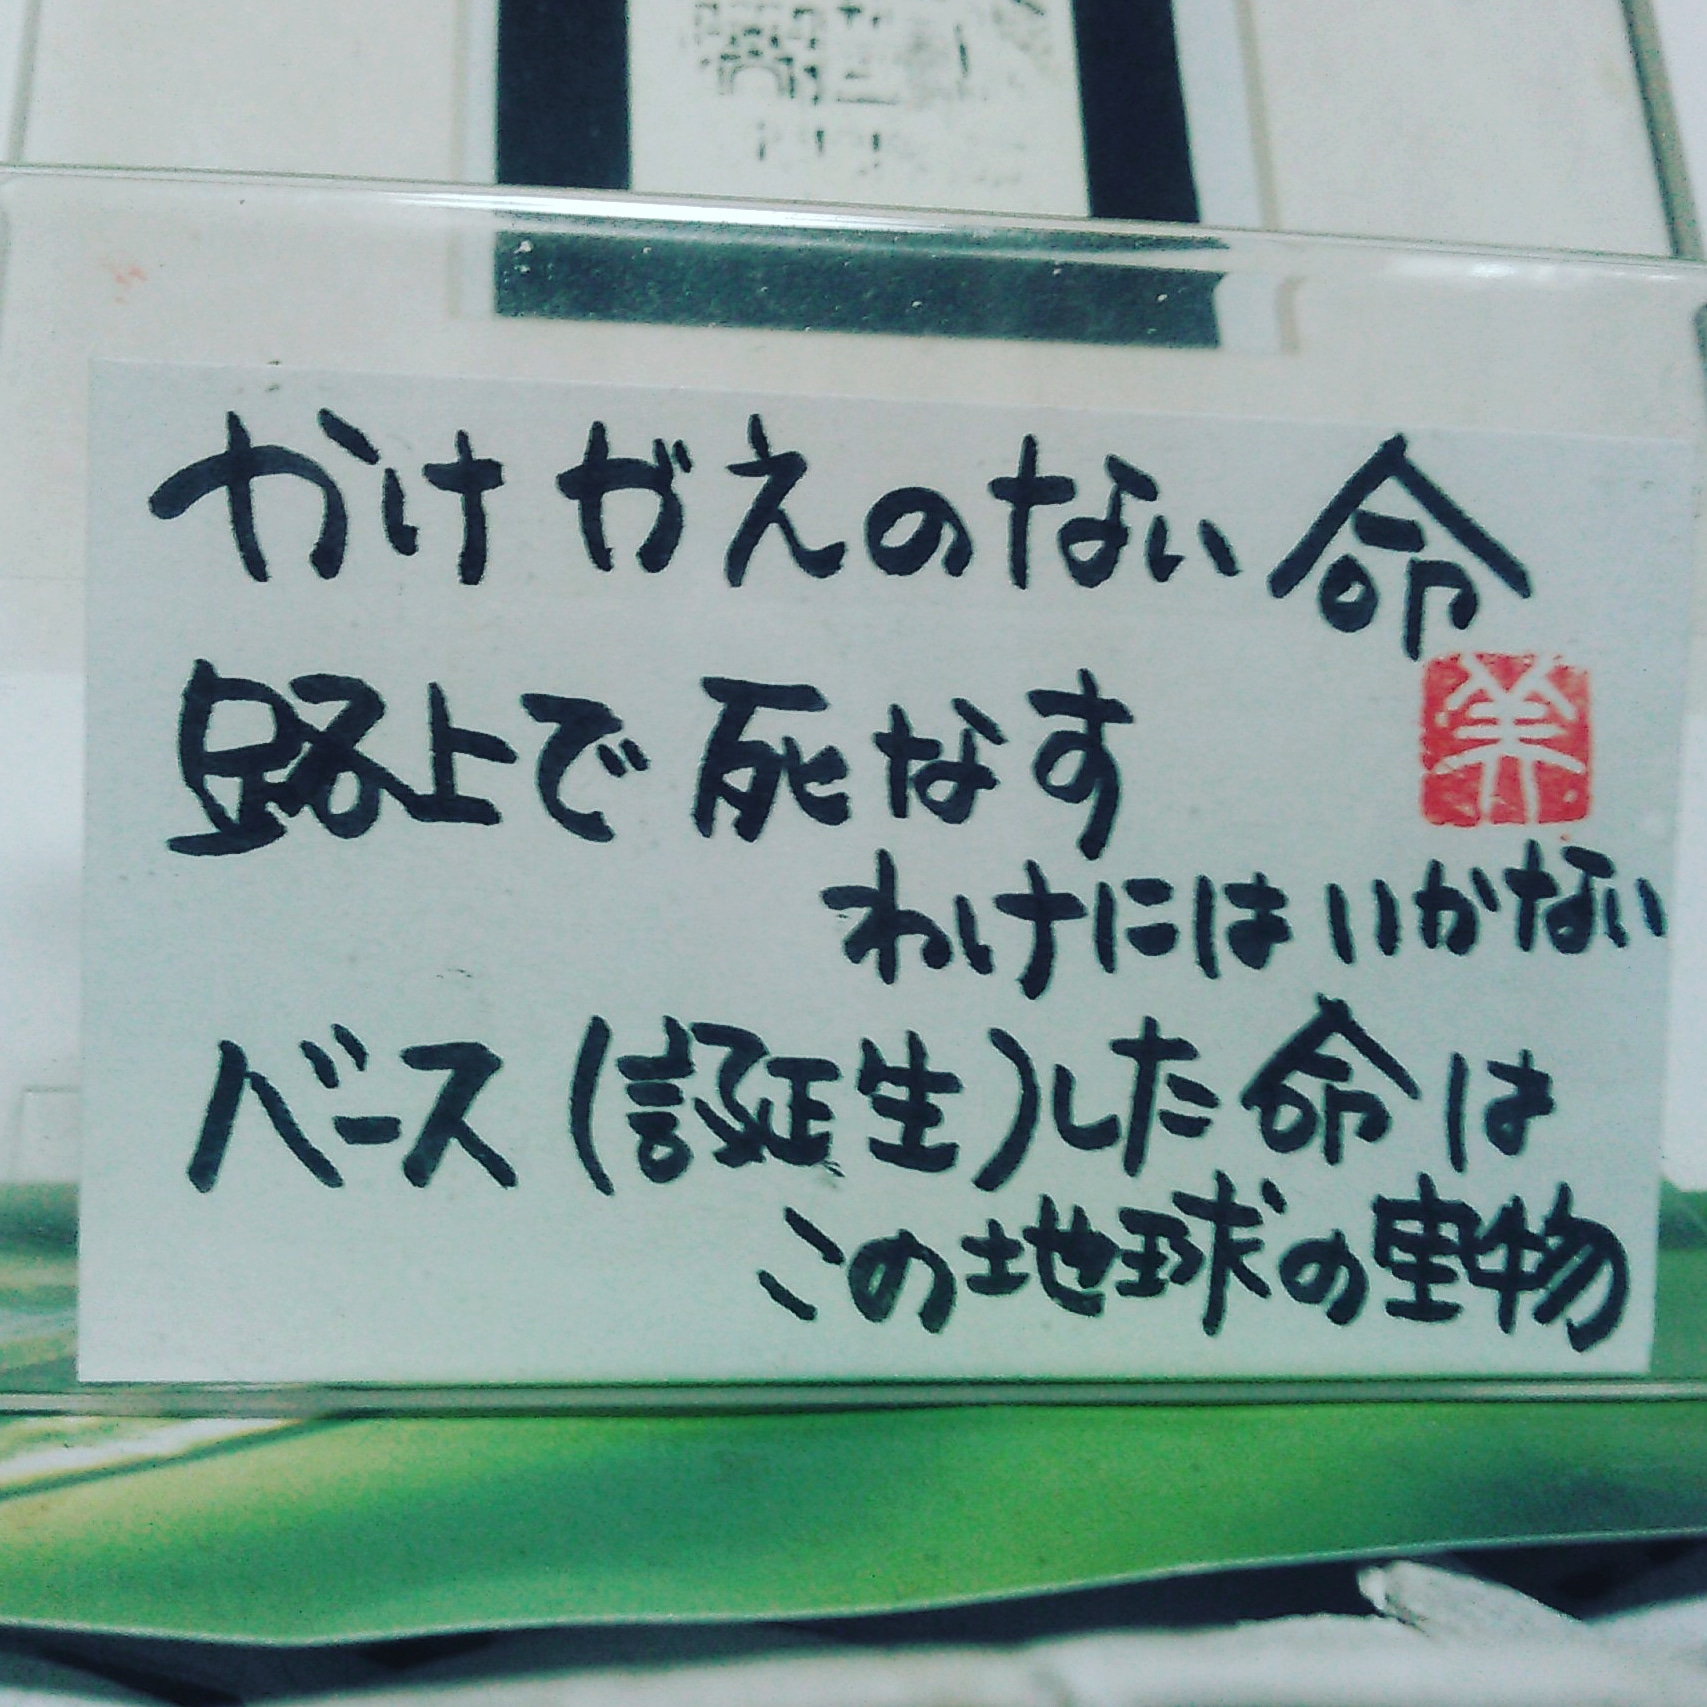 かけがえのない命
路上で死なす
わけにはいかない
バース(誕生)した命は
この地球の宝物
美